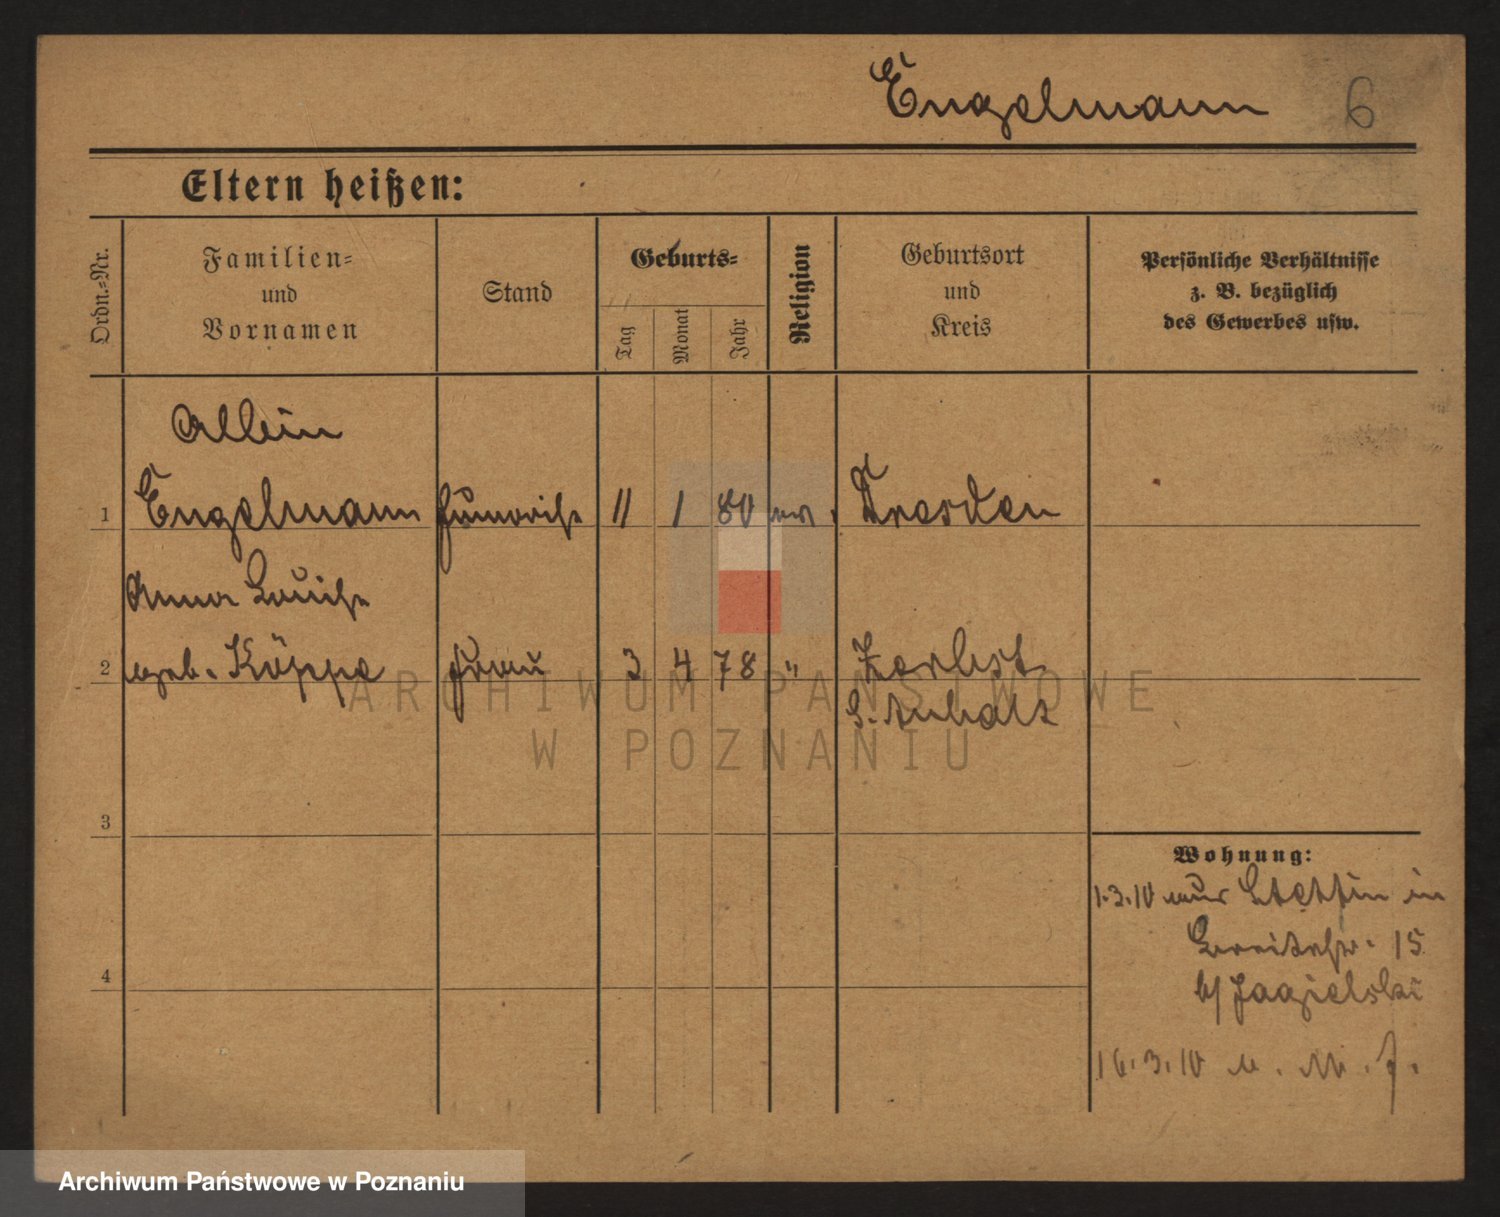 Engelmann 6
Eltern heißen:
Ordn.-Nr.
Familien-
und
Vornamen
Stand
Geburts-
Tag
Monat
Jahr
Religion
Geburtsort
und
Kreis
Persönliche Verhältnisse
z. B. bezüglich
des Gewerbes usw.
Albin
1 Engelmann Humorist 11 1 80 ev. Dresden
Anna Louise
2 geb. Köppe Frau 3 4 78 " Zerbst
H. Anhalt
3
4
Wohnung:
1.3.10 aus Stettin in
Breitestr. 15
b/ Jagielski
16.3.10 n. M.
ARCHIWUM PAŃSTWOWE
W POZNANIU
Archiwum Państwowe w Poznaniu